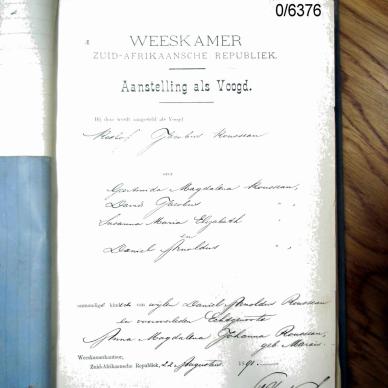 0/6376
WEESKAMER
ZUID-AFRIKAANSCHE REPUBLIEK.
Aanstelling als Voogd.
Bij deze wordt aangesteld als Voogd
Jacobus Rousseau
over
Gertruida Magdalena Rousseau,
David Jacobus "
Susanna Maria Elizabeth "
en
Daniel Arnoldus "
minderjarige kinderen van wijlen Daniel Arnoldus Rousseau
en vooroverleden Echtgenoote
Anna Magdalena Johanna Rousseau,
geb Marais
Weeskamerkantoor,
Zuid-Afrikaansche Republiek, 22 Augustus 1891.